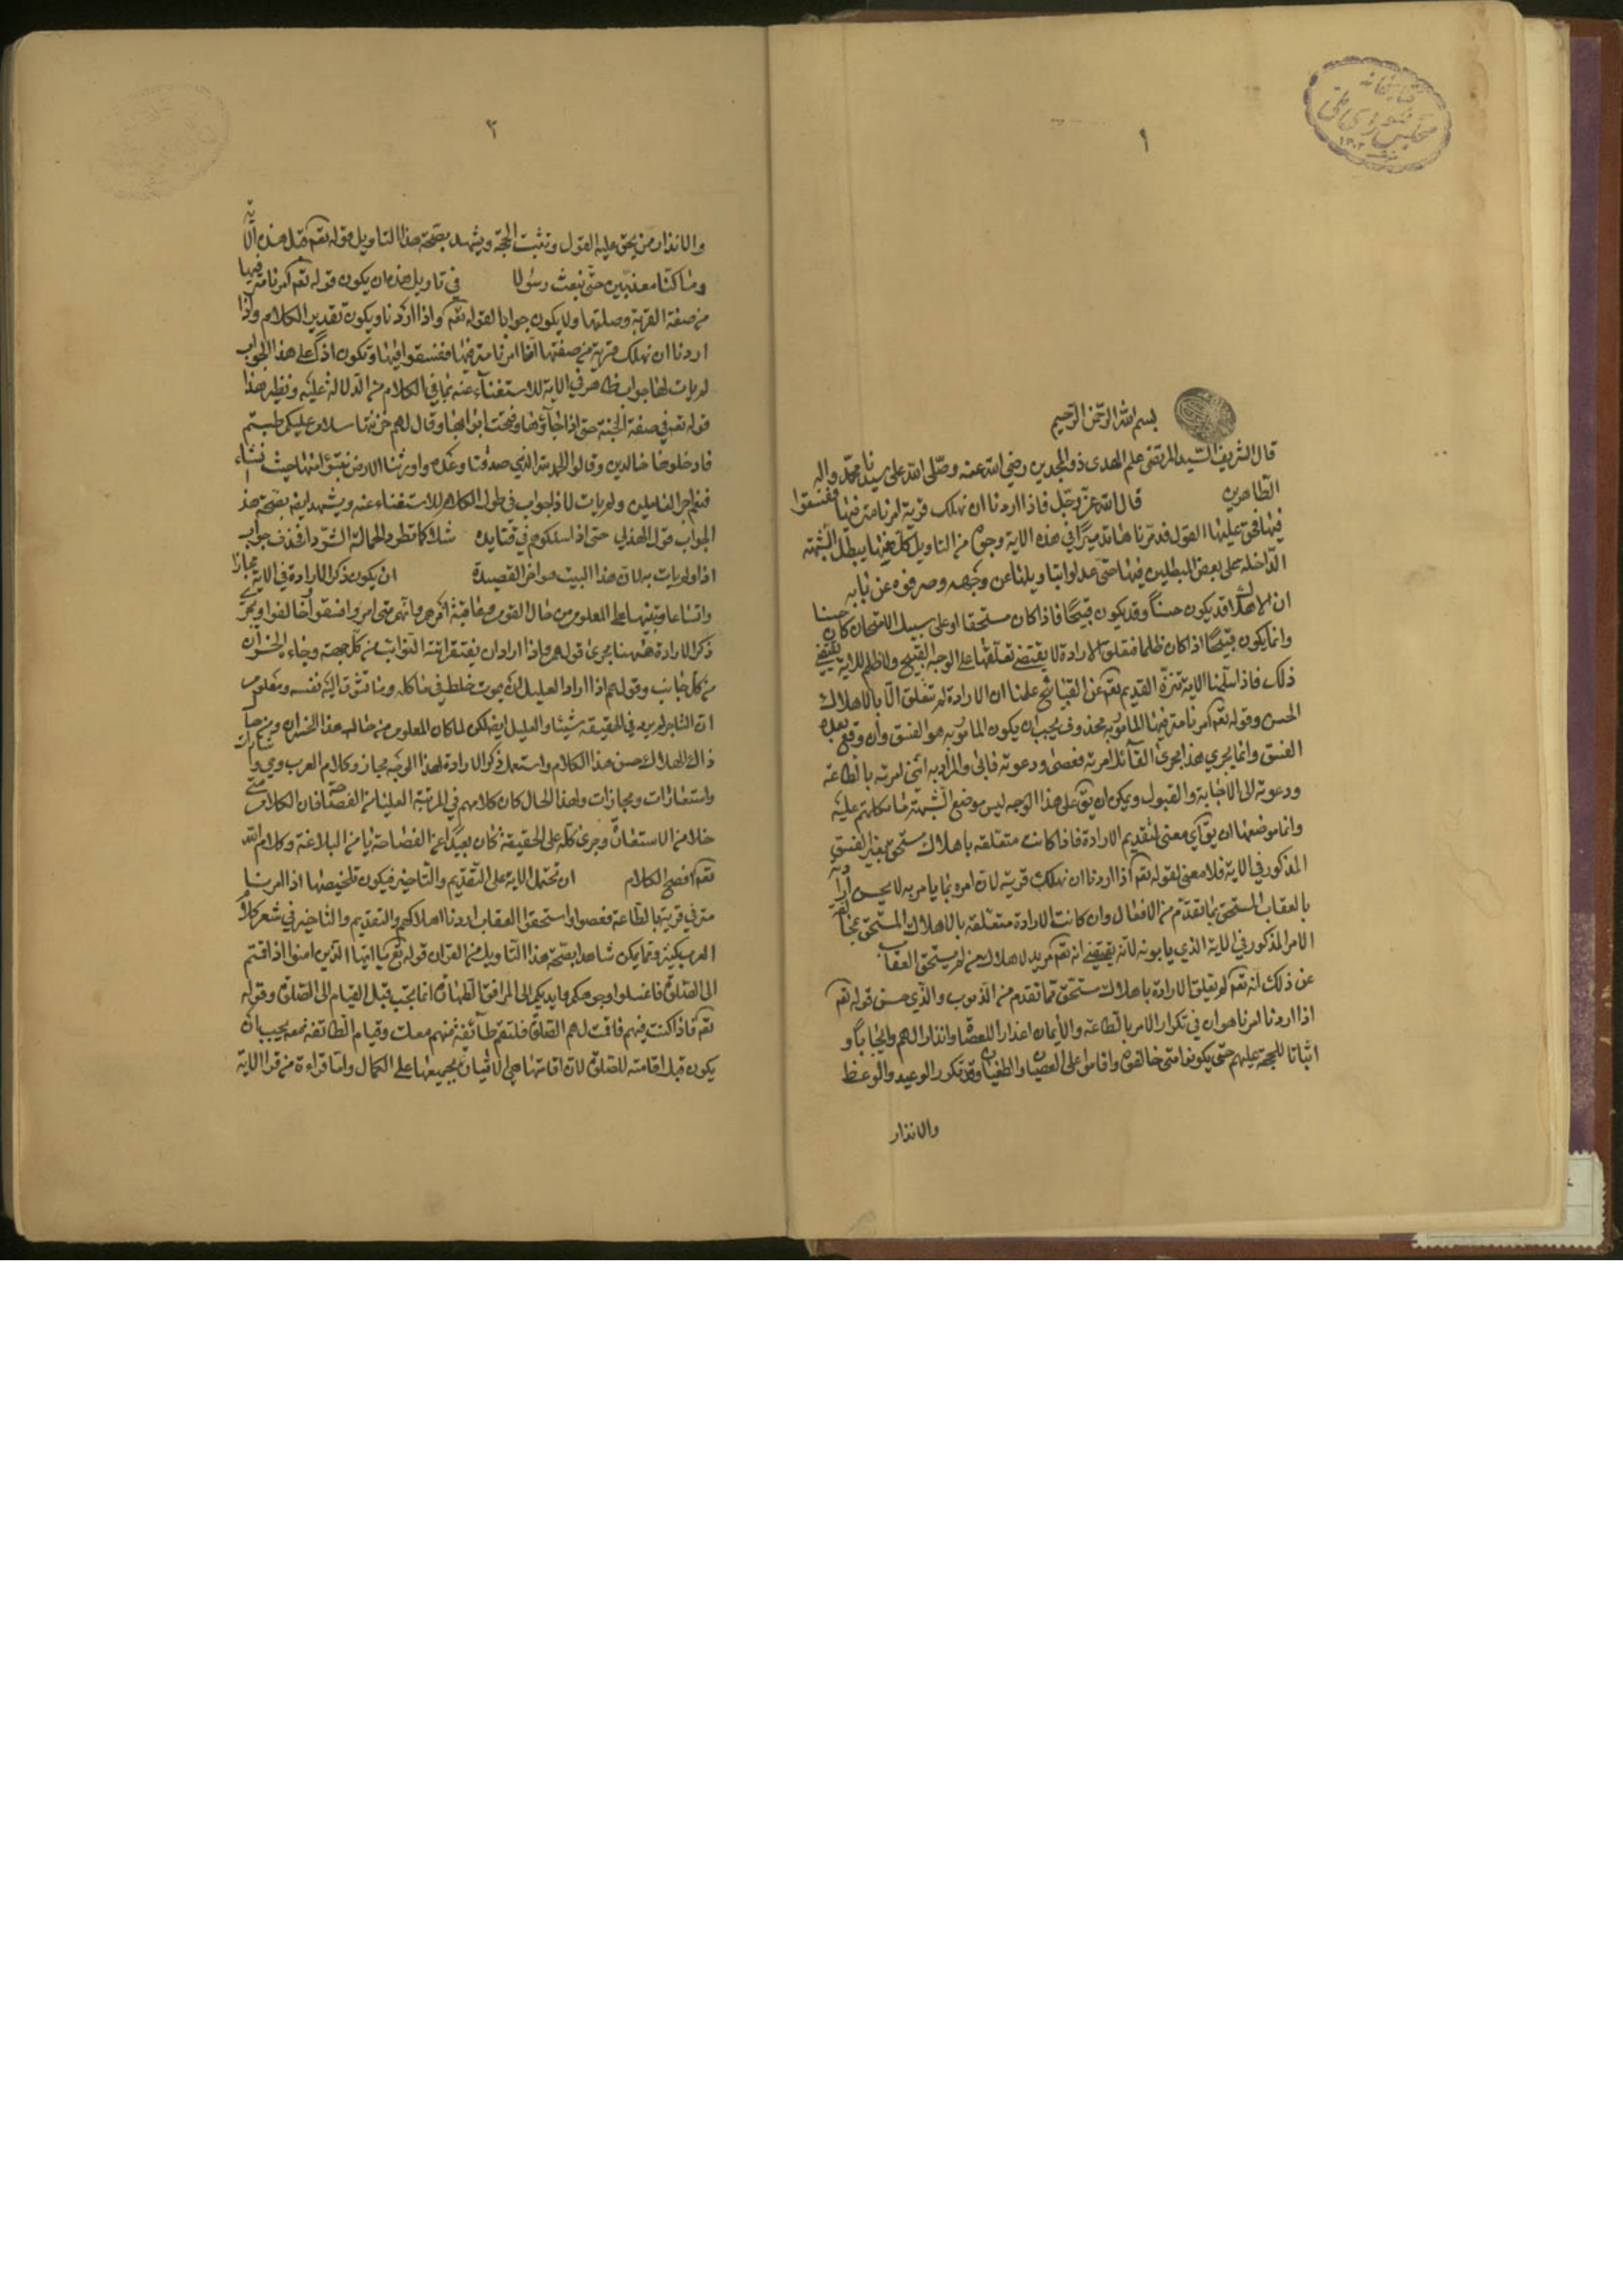 ١
بسم الله الرحمن الرحيم
قال الشريف السيد المرتضى علم الهدى ذو المجدين رضي الله عنه وصلى الله على سيدنا محمد واله
الطاهرين قال الله عز وجل فاذا اردنا ان نهلك قرية امرنا مترفيها ففسقوا
فيها فحق عليها القول فدمرناها تدميرا في هذه الاية وجوه من التاويل كل منها يبطل الشبهة
الداخلة على بعض المبطلين فيها حتى عدلوا بتاويلها عن وجهه وصرفوه عن بابه
ان الاهلاك قد يكون حسنا وقد يكون قبيحا فاذا كان مستحقا او على سبيل الامتحان كان حسنا
وانما يكون قبيحا اذا كان ظلما فتعلق الارادة لا يقتضي تعلقها على الوجه القبيح ولا ظاهر للاية يقتضي
ذلك فاذا علمنا الاية تنزه القديم تعم عن القبائح علمنا ان الارادة لم تتعلق الا بالاهلاك
الحسن وقوله تعم امرنا مترفيها المامور به محذوف يجب ان يكون المامور به هو الفسق وان وقع بعده
الفسق وانما يجري هذا مجرى القائل امرته فعصى ودعوته فابى والمراد به انني امرته بالطاعة
ودعوته الى الاجابة والقبول ويمكن ان يق على هذا الوجه ليس موضع الشبهة ما تكلمتم عليه
وانما موضعها ان يق اي معنى لتقديم الارادة فاذا كانت متعلقة باهلاك مستحق بغير الفسق
المذكور في الاية فلا معنى لقوله تعم اذا اردنا ان نهلك قرية لان امره بما يامر به لا يحسن ارادته
بالعقاب المستحق بما تقدم من الافعال وان كانت الارادة متعلقة بالاهلاك المستحق بمخالفة
الامر المذكور في الاية الذي يابونه لانه يقتضي انه تعم مريد لاهلاك من لم يستحق العقاب
عن ذلك انه تعم لم يعلق الارادة باهلاك مستحق مما تقدم من الذنوب والذي حسن قوله تعم
اذا اردنا امرنا هو ان في تكرار الامر بالطاعة والايمان اعذارا للعصاة وانذارا لهم وايجابا و
اثباتا للحجة عليهم حتى يكونوا متى خالفوه واقاموا على العصيان والطغيان وقد تكرر الوعيد والوعظ
والانذار
٢
والانذار من يحق عليه القول وتثبت الحجة ويشهد بصحة هذا التاويل قوله تعم قبل هذه الاية
وما كنا معذبين حتى نبعث رسولا في تاويل هذه ان يكون قوله تعم امرنا مترفيها
من صفة القرية وصلتها ولا يكون جوابا لقوله تعم واذا اردنا ويكون تقدير الكلام واذا
اردنا ان نهلك قرية من صفتها انا امرنا مترفيها ففسقوا فيها وتكون اذا على هذا الجواب
لم يات لها جواب ظاهر في الاية للاستغناء عنه بما في الكلام من الدلالة عليه ونظير هذا
قوله تعم في صفة الجنة حتى اذا جاؤها وفتحت ابوابها وقال لهم خزنتها سلام عليكم طبتم
فادخلوها خالدين وقالوا الحمد لله الذي صدقنا وعده واورثنا الارض نتبوا منها حيث نشاء
فنعم اجر العاملين ولم يات لاذا جواب في طول الكلام للاستغناء عنه ويشهد ايضا بصحة هذا
الجواب قول الهذلي حتى اذا اسلكوهم في قتايده شلا كما تطرد الجمالة الشردا فحذف جواب
اذا ولم يات به لان هذا البيت هو اخر القصيدة ان يكون ذكر الارادة في الاية مجازا
واتساعا وتنبيها على المعلوم من حال القوم وعاقبة امرهم وانهم متى امروا فسقوا وخالفوا ويجري
ذكر الارادة ههنا مجرى قولهم اذا اراد ان يفتقر اتته النوائب من كل جهة وجاءه الخسران
من كل جانب وقولهم اذا اراد العليل ان يموت خلط في ماكله وما تتشوق اليه نفسه ومعلوم
ان التاجر لم يرد في الحقيقة شيئا والعليل ايضا لكن لما كان المعلوم من حال هذا الخسران ومن حال
ذاك الهلاك حسن هذا الكلام واستعمل ذكر الارادة لهذا الوجه مجاز وكلام العرب وحي واشارات
واستعارات ومجازات ولهذا الحال كان كلامهم في المرتبة العليا من الفصاحة فان الكلام متى
خلا من الاستعارة وجرى كله على الحقيقة كان بعيدا عن الفصاحة بريا من البلاغة وكلام الله
تعم افصح الكلام ان تحتمل الاية على التقديم والتاخير فيكون تلخيصها اذا امرنا
مترفي قرية بالطاعة فعصوا واستحقوا العقاب اردنا اهلاكهم والتقديم والتاخير في شعر كلام
العرب كثير ومما يمكن شاهدا بصحة هذا التاويل من القران قوله تع يا ايها الذين امنوا اذا قمتم
الى الصلوة فاغسلوا وجوهكم وايديكم الى المرافق والطهارة انما تجب قبل القيام الى الصلوة وقوله
تعم فاذا كنت فيهم فاقمت لهم الصلوة فلتقم طائفة منهم معك وقيام الطائفة معه يجب ان
يكون قبل اقامته للصلوة لان اقامتها هي الاتيان بجميعها على الكمال واما قراءة من قرا الاية